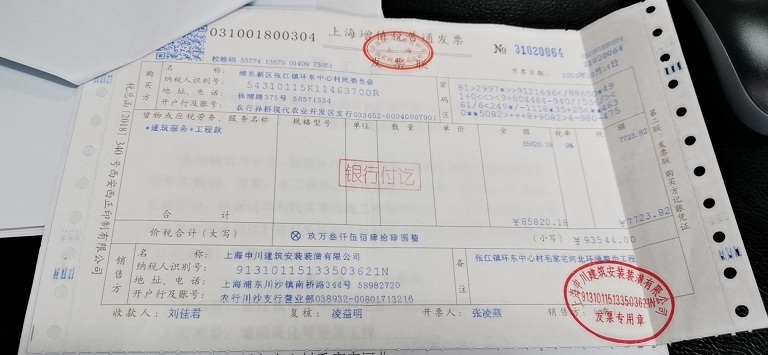 031001800304 上海增值税普通发票 № 31020064
31020064
校验码 53774 13679 01409 73051
开票日期:
购买方
名 称: 浦东新区张江镇环东中心村村民委员会
纳税人识别号: 54310115K11463700R
地 址、电 话: 孙桥路375号 58571334
开户行及账号: 农行孙桥现代农业开发区支行033652-00040007901
密码区
货物或应税劳务、服务名称 规格型号 单位 数量 单价 金额 税率 税额
*建筑服务*工程款 85820.18 9% 7723.82
银行付讫
合 计 ¥85820.18 ¥7723.82
价税合计(大写) ⊗ 玖万叁仟伍佰肆拾肆圆整 (小写) ¥93544.00
销售方
名 称: 上海申川建筑安装装潢有限公司
纳税人识别号: 91310115133503621N
地 址、电 话: 上海浦东川沙镇南桥路344号 58982720
开户行及账号: 农行川沙支行营业部038932-00801713216
备注
张江镇环东中心村毛家宅河北环境整治工程
收款人: 刘佳君 复核: 凌益明 开票人: 张凌燕 销售方:
上海申川建筑安装装潢有限公司
91310115133503621N
发票专用章
税总函〔2018〕340号西安西正印制有限公司
第二联:发票联 购买方记账凭证